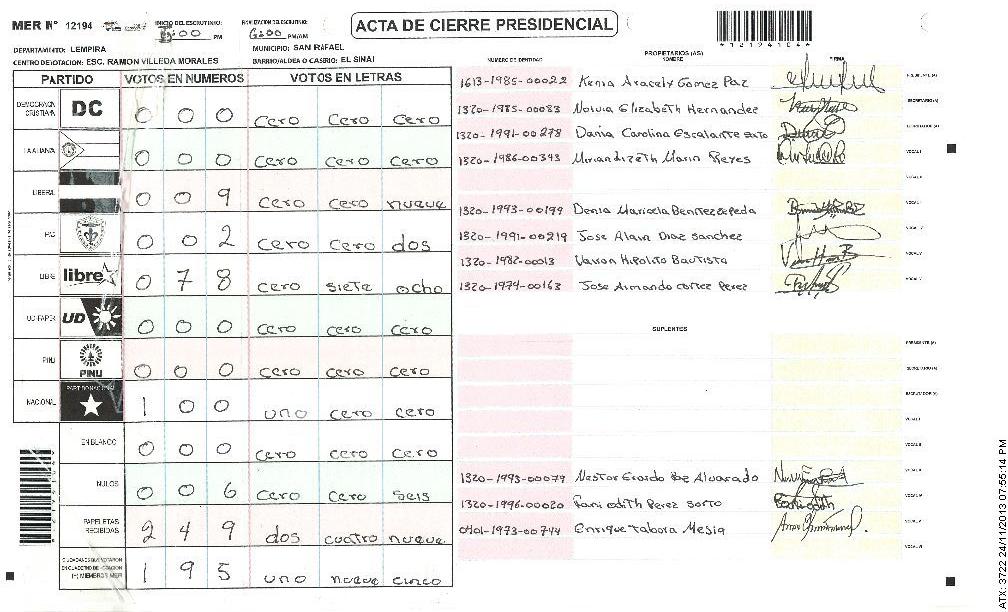 MER Nº 12194
INICIO DEL ESCRUTINIO: 5:00 PM
FINALIZACION DEL ESCRUTINIO: 6:00 PM/AM
ACTA DE CIERRE PRESIDENCIAL
*12194104*
DEPARTAMENTO: LEMPIRA
MUNICIPIO: SAN RAFAEL
CENTRO DE VOTACION: ESC. RAMON VILLEDA MORALES
BARRIO/ALDEA O CASERIO: EL SINAI
PARTIDO VOTOS EN NUMEROS VOTOS EN LETRAS
DEMOCRACIA CRISTIANA DC 0 0 0 cero cero cero
LA ALIANZA 0 0 0 cero cero cero
LIBERAL 0 0 9 cero cero nueve
PAC 0 0 2 cero cero dos
LIBRE libre 0 7 8 cero siete ocho
UD-FAPER UD 0 0 0 cero cero cero
PINU PINU 0 0 0 cero cero cero
NACIONAL PARTIDO NACIONAL 1 0 0 uno cero cero
EN BLANCO 0 0 0 cero cero cero
NULOS 0 0 6 cero cero seis
PAPELETAS RECIBIDAS 2 4 9 dos cuatro nueve
CIUDADANOS QUE VOTARON EN CUADERNO DE VOTACION (+) MIEMBROS MER 1 9 5 uno nueve cinco
PROPIETARIOS (AS)
NUMERO DE IDENTIDAD NOMBRE FIRMA
1613-1985-00022 Kenia Aracely Gomez Paz PRESIDENTE (A)
1320-1985-00083 Elizabeth Hernandez SECRETARIO (A)
1320-1991-00278 Dania Carolina Escalante ESCRUTADOR (A)
1320-1986-00393 Marin Reyes VOCAL I
VOCAL II
1320-1993-00199 Denia Maricela Benitez zepeda
1320-1991-00219 Jose Alain Diaz sanchez
1320-1982-00013 Hipolito Bautista VOCAL V
1320-1974-00163 Jose Armando cortez Perez
SUPLENTES
PRESIDENTE (A)
SECRETARIO (A)
ESCRUTADOR (A)
VOCAL I
VOCAL II
1320-1993-00079 Nestor Alvarado
1320-1996-00020 edith Perez
0401-1973-00744 Enrique tabora Mejia
VOCAL VI
ATX: 3722 24/11/2013 07:55:14 PM